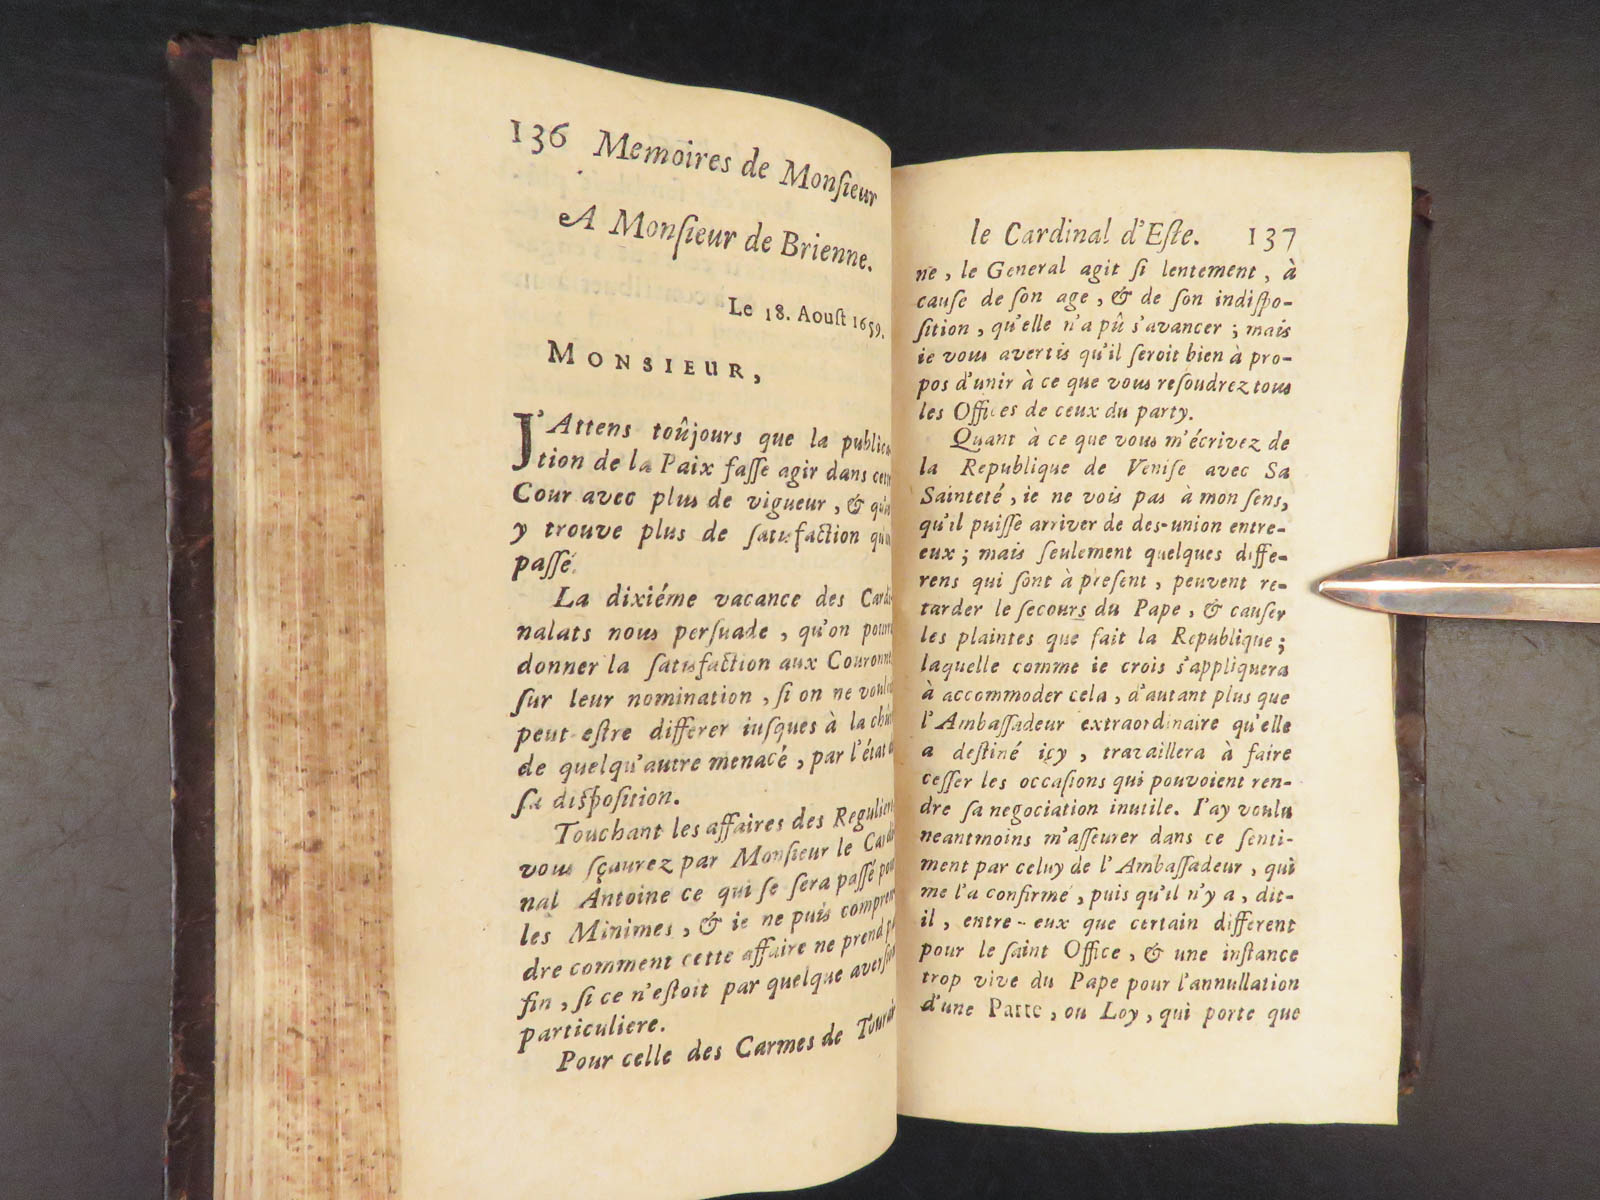 136 Memoires de Monſieur
A Monſieur de Brienne.
Le 18. Aouſt 1659.
MONSIEUR,
J'Attens toûjours que la publica
tion de la Paix faſſe agir dans cette
Cour avec plus de vigueur, &
y trouve plus de ſatisfaction
paſſé.
La dixiéme vacance des Cardi
nalats nous perſuade, qu'on pourra
donner la ſatisfaction aux Couronnes
ſur leur nomination, ſi on ne vouloit
peut-eſtre differer iuſques à la chûte
de quelqu'autre menacé, par l'état de
ſa diſpoſition.
Touchant les affaires des Reguliers
vous ſçaurez par Monſieur le Cardi
nal Antoine ce qui se sera paſſé pour
les Minimes, & ie ne puis compren
dre comment cette affaire ne prend
fin, ſi ce n'eſtoit par quelque averſion
particuliere.
Pour celle des Carmes de Tourai
le Cardinal d'Eſte. 137
ne, le General agit ſi lentement, à
cauſe de ſon age, & de ſon indiſpo-
ſition, qu'elle n'a pû s'avancer; mais
ie vous avertis qu'il ſeroit bien à pro-
pos d'unir à ce que vous reſoudrez tous
les Offices de ceux du party.
Quant à ce que vous m'écrivez de
la Republique de Veniſe avec Sa
Sainteté, ie ne vois pas à mon ſens,
qu'il puiſſe arriver de des-union entre-
eux; mais ſeulement quelques diffe-
rens qui ſont à preſent, peuvent re-
tarder le ſecours du Pape, & cauſer
les plaintes que fait la Republique;
laquelle comme ie crois s'appliquera
à accommoder cela, d'autant plus que
l'Ambaſſadeur extraordinaire qu'elle
a deſtiné içy, travaillera à faire
ceſſer les occaſions qui pouvoient ren-
dre ſa negociation inutile. I'ay voulu
neantmoins m'aſſeurer dans ce ſenti-
ment par celuy de l'Ambaſſadeur, qui
me l'a confirmé, puis qu'il n'y a, dit-
il, entre-eux que certain different
pour le ſaint Office, & une inſtance
trop vive du Pape pour l'annullation
d'une Parte, ou Loy, qui porte que